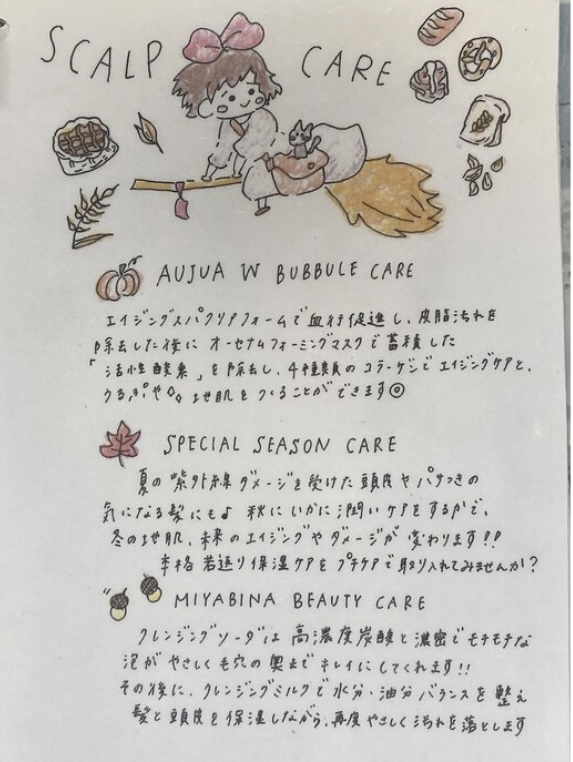 SCALP CARE
AUJUA W BUBBULE CARE
エイジングスパクリアフォームで血行促進し、皮脂汚れを
除去した後に オーセナムフォーミングマスクで蓄積した
「活性酸素」を除去し、4種類のコラーゲンでエイジングケアと、
うるぷや 地肌をつくることができます◎
SPECIAL SEASON CARE
夏の紫外線ダメージを受けた頭皮やパサつきの
気になる髪にも♪ 秋にいかに潤いケアをするかで、
冬の地肌、未来のエイジングやダメージが変わります!!
本格若返り保湿ケアをプチケアで取り入れてみませんか?
MIYABINA BEAUTY CARE
クレンジングソーダは高濃度炭酸と濃密でモチモチな
泡がやさしく毛穴の奥までキレイにしてくれます!!
その後に、クレンジングミルクで水分・油分バランスを整え
髪と頭皮を保湿しながら、再度やさしく汚れを落とします